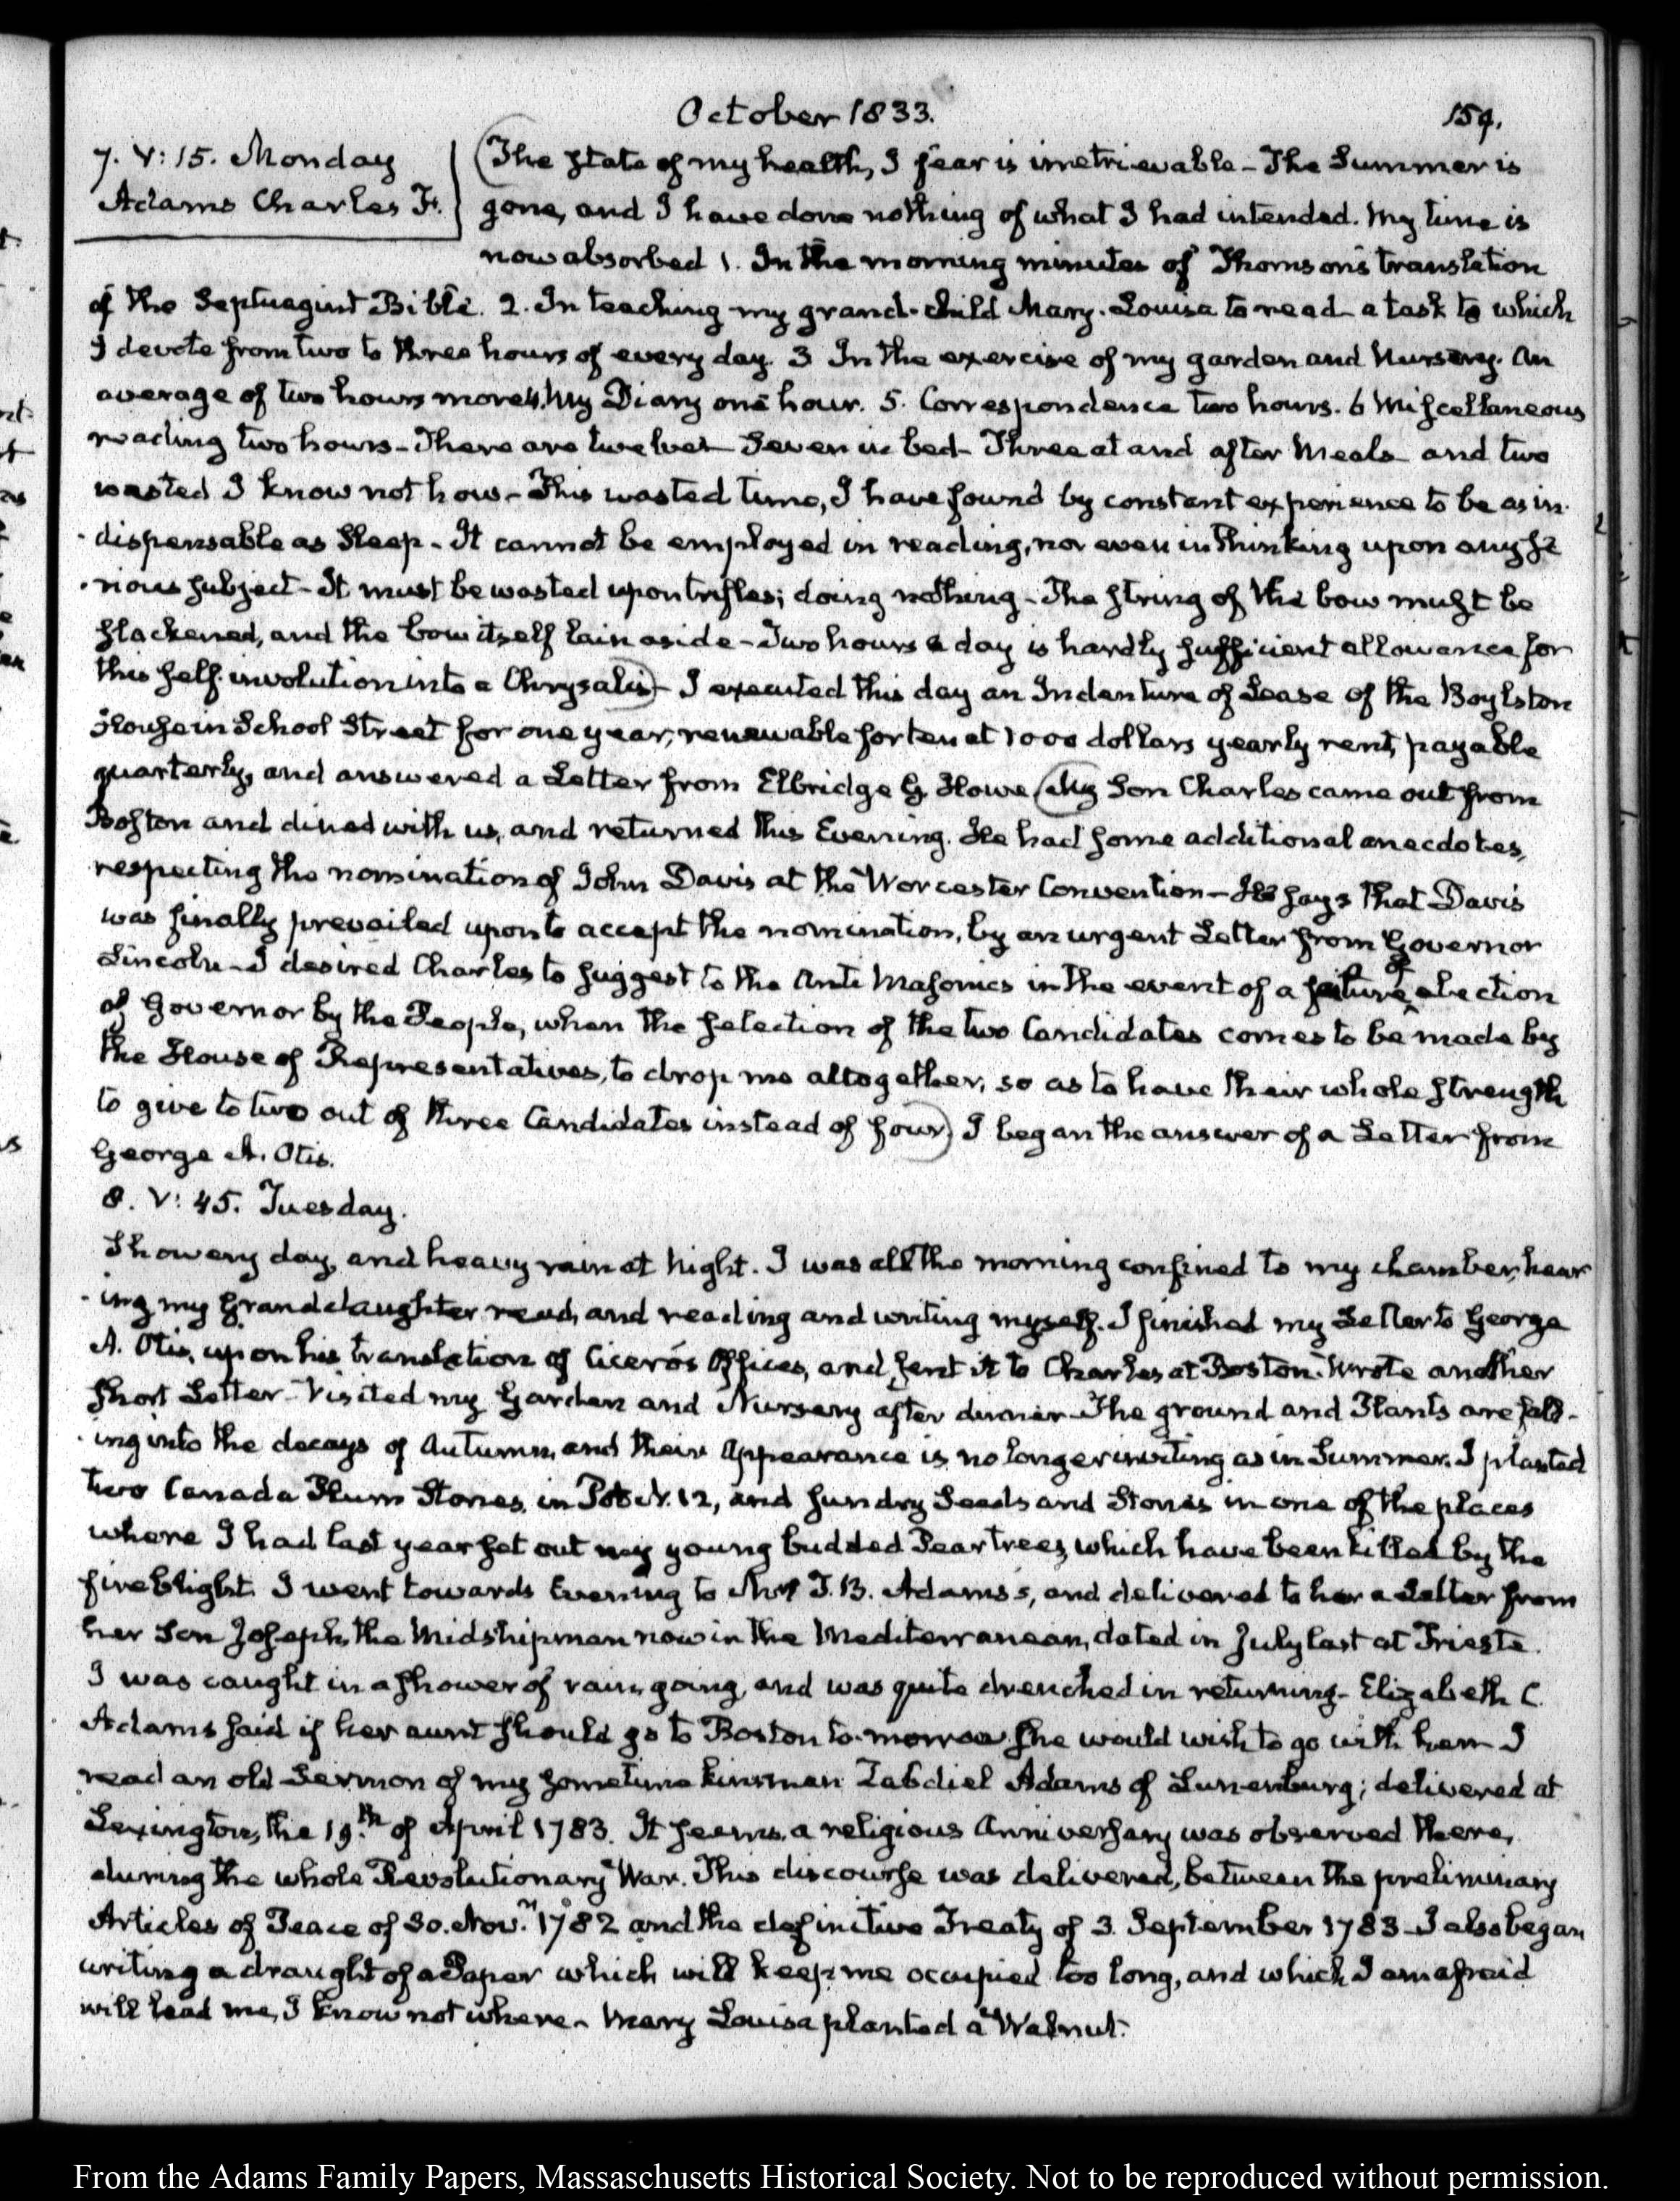 October 1833.
159.
7. V: 15. Monday
Adams Charles F.
The state of my health, I fear is irretrievable - The Summer is
gone, and I have done nothing of what I had intended. My time is
now absorbed 1. In the morning minutes of Thomson's translation
of the Septuagint Bible. 2. In teaching my grand-child Mary-Louisa to read - a task to which
I devote from two to three hours of every day. 3 In the exercise of my garden and Nursery. An
average of two hours more 4. My Diary one hour. 5. Correspondence two hours. 6 Miscellaneous
reading two hours - There are twelve - Seven in bed - Three at and after Meals - and two
wasted I know not how - This wasted time, I have found by constant experience to be as in-
dispensable as Sleep - It cannot be employed in reading, nor even in thinking upon any se
-rious subject - It must be wasted upon trifles; doing nothing - The string of the bow must be
slackened, and the bow itself lain aside - Two hours a day is hardly sufficient allowance for
this self-involution into a Chrysalis - I executed this day an Indenture of Lease of the Boylston
House in School Street for one year, renewable for ten at 1000 dollars yearly rent, payable
quarterly, and answered a Letter from Elbridge G. Howe (My Son Charles came out from
Boston and dined with us, and returned this Evening. He had some additional anecdotes,
respecting the nomination of John Davis at the Worcester Convention - He says that Davis
was finally prevailed upon to accept the nomination, by an urgent Letter from Governor
Lincoln - I desired Charles to suggest to the Anti Masonics in the event of a failure of election
of Governor by the People, when the selection of the two Candidates comes to be made by
the House of Representatives, to drop me altogether, so as to have their whole strength
to give to two out of three Candidates instead of four) I began the answer of a Letter from
George A. Otis.
8. V: 45. Tuesday.
Showery day, and heavy rain at Night. I was all the morning confined to my chamber, hear
-ing my Granddaughter read, and reading and writing myself. I finished my Letter to George
A. Otis, upon his translation of Cicero's Offices, and sent it to Charles at Boston. Wrote another
short Letter - Visited my Garden and Nursery after dinner - The ground and Plants are fall-
-ing into the decays of Autumn, and their appearance is no longer inviting as in Summer. I planted
two Canada Plum Stones, in Pot N. 12, and sundry Seeds and Stones in one of the places
where I had last year set out my young budded Pear trees, which have been killed by the
fireblight. I went towards Evening to Mrs T. B. Adams's, and delivered to her a Letter from
her Son Joseph, the Midshipman now in the Mediterranean, dated in July last at Trieste.
I was caught in a shower of rain, going, and was quite drenched in returning - Elizabeth C.
Adams said if her aunt should go to Boston to-morrow she would wish to go with her - I
read an old Sermon of my sometime kinsman Zabdiel Adams of Lunenburg; delivered at
Lexington, the 19.th of April 1783. It seems, a religious Anniversary was observed there,
during the whole Revolutionary War. This discourse was delivered, between the preliminary
Articles of Peace of 30. Nov.r 1782 and the definitive Treaty of 3. September 1783 - I also began
writing a draught of a Paper which will keep me occupied too long, and which I am afraid
will lead me, I know not where - Mary Louisa planted a Walnut.
From the Adams Family Papers, Massachusetts Historical Society. Not to be reproduced without permission.